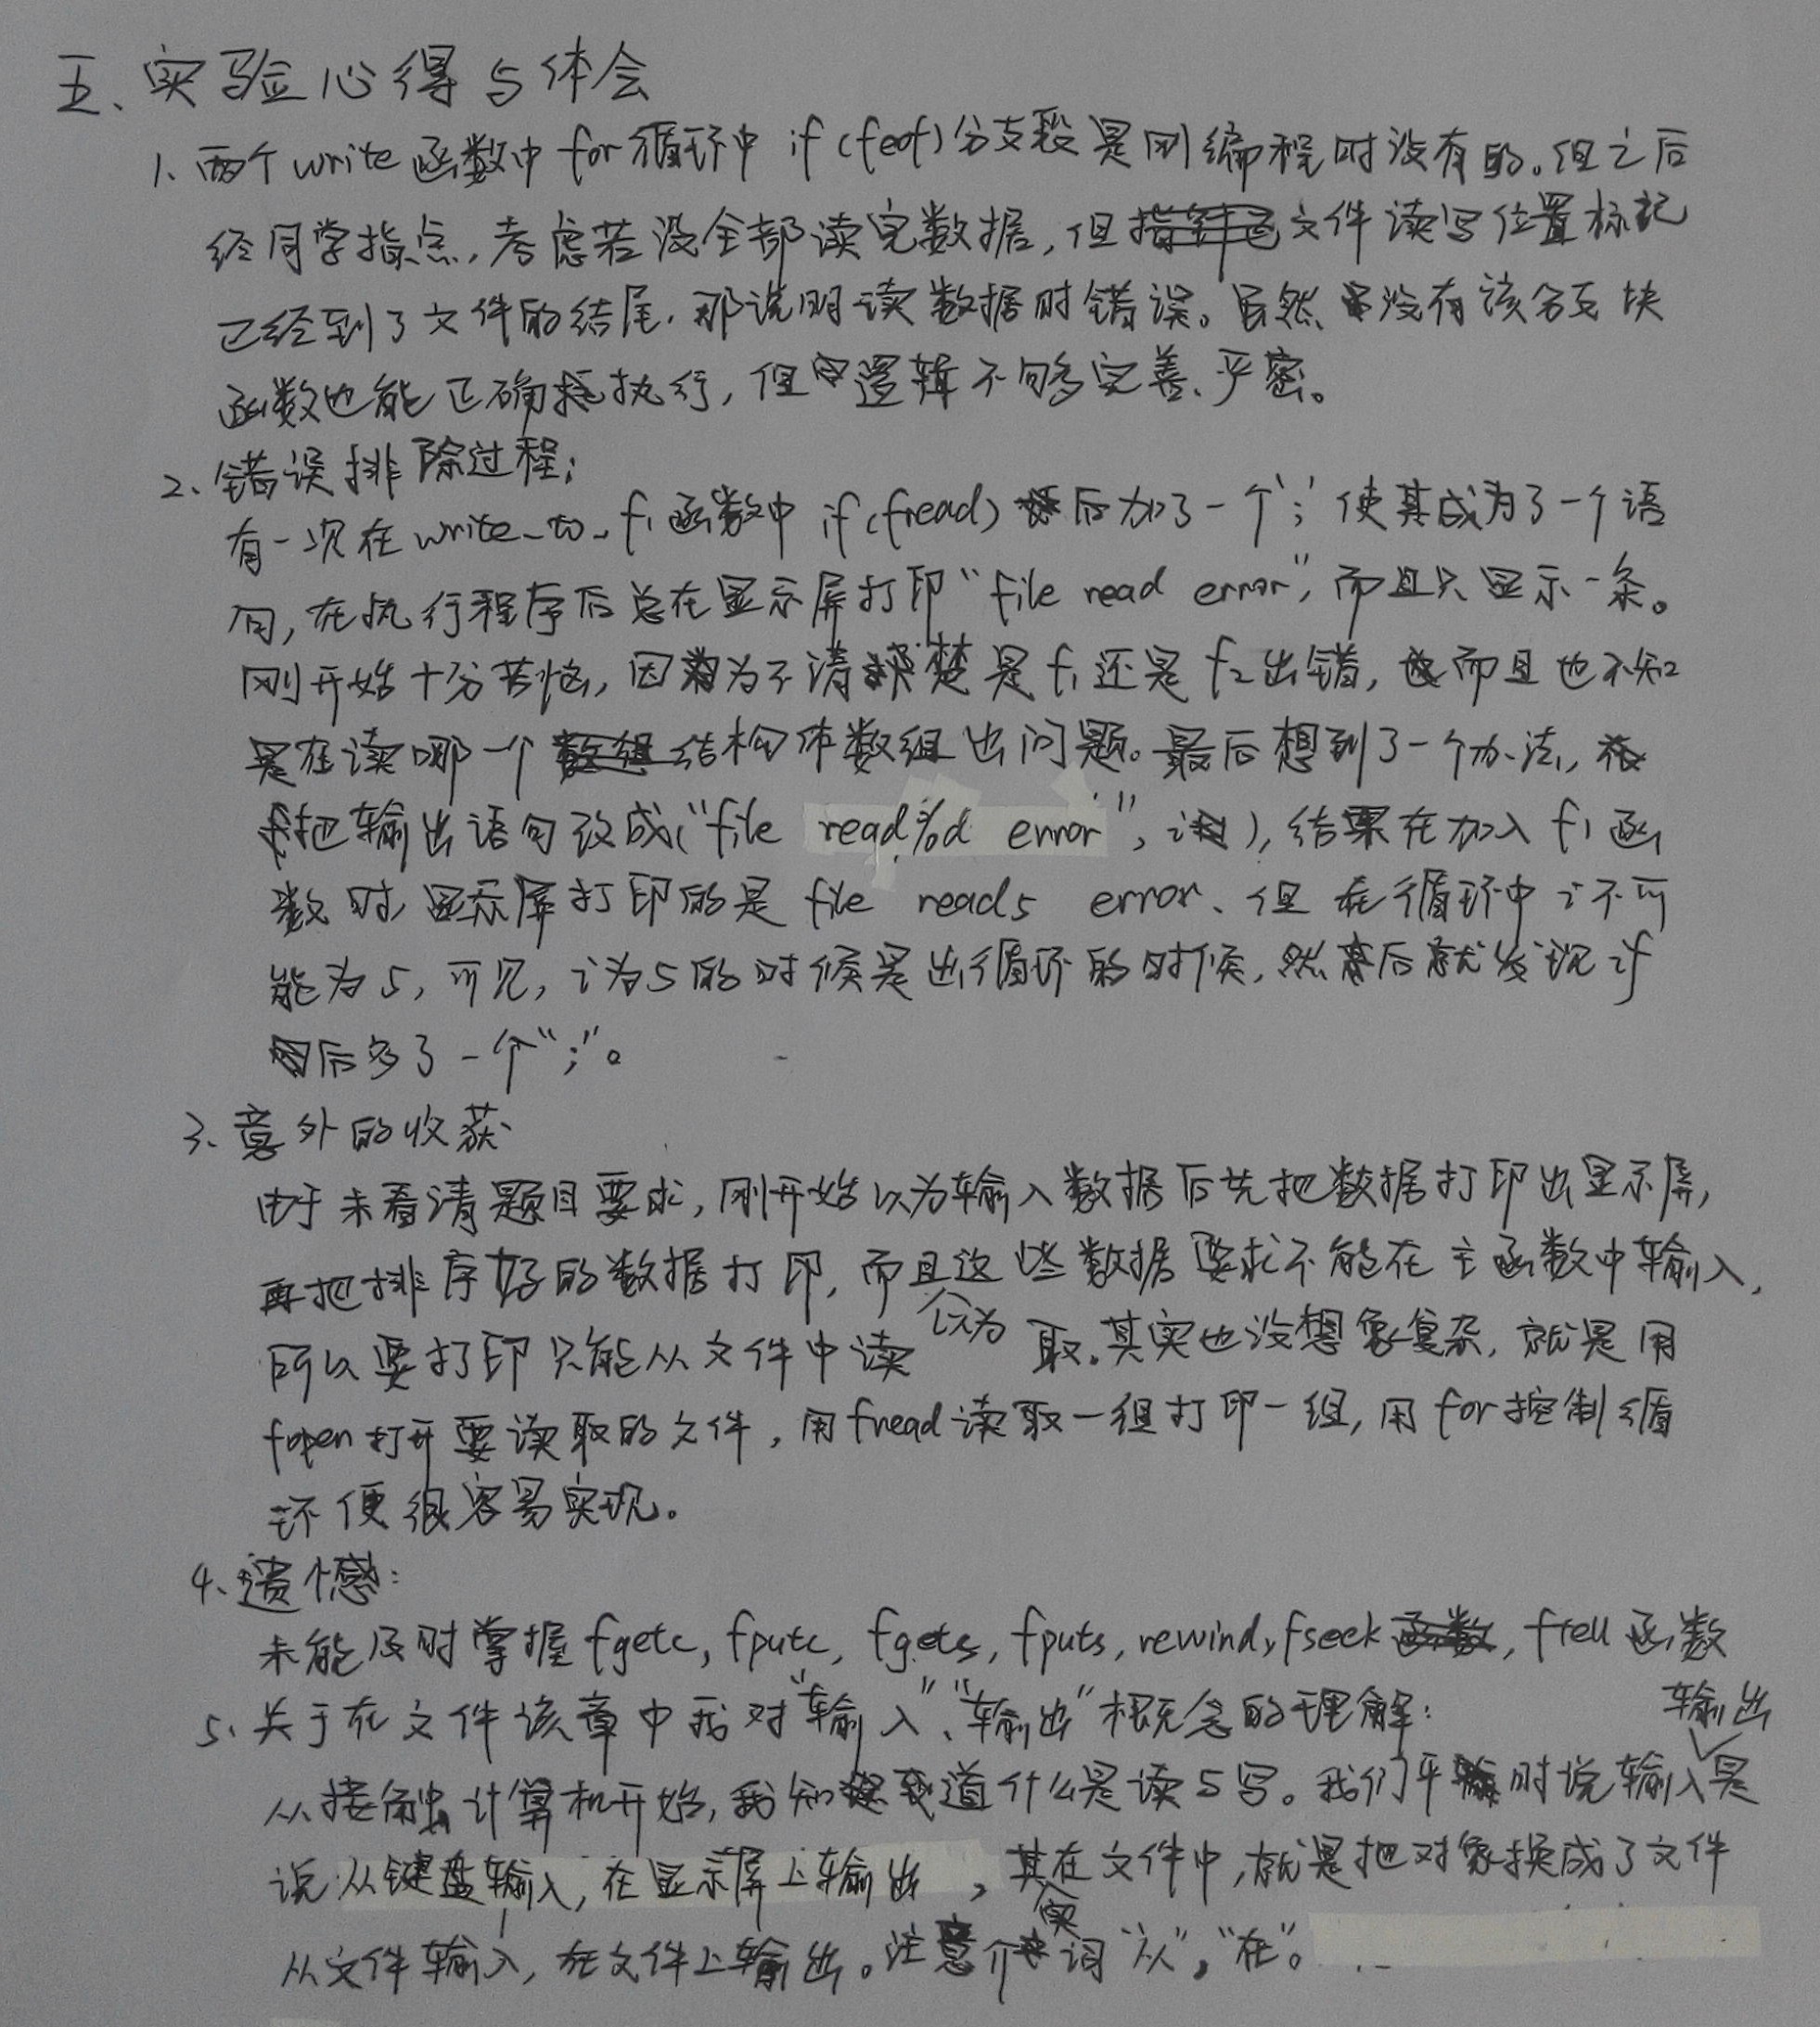 五、实验心得与体会
1、两个write函数中for循环中if(feof)分支段是刚编程时没有的。但之后
经同学指点,考虑若没全部读完数据,但文件读写位置标记
已经到了文件的结尾,那说明读数据时错误。虽然没有该分支块
函数也能正确执行,但逻辑不够完善、严密。
2、错误排除过程;
有一次在write_to_f1函数中if(fread)后加了一个';'使其成为了一个语
句,在执行程序后总在显示屏打印“file read error”,而且只显示一条。
刚开始十分苦恼,因为不清楚是f1还是f2出错,而且也不知
是在读哪一个结构体数组出问题。最后想到了一个办法,
把输出语句改成(“file read%d error”, i),结果在加入f1函
数时,显示屏打印的是 file read5 error、但在循环中i不可
能为5,可见,i为5的时候是出循环的时候,然后就发现if
后多了一个“;”。
3、意外的收获
由于未看清题目要求,刚开始以为输入数据后先把数据打印出显示屏,
再把排序好的数据打印,而且这些数据要求不能在主函数中输入,
所以要打印只能从文件中读取。其实也没想象复杂,就是用
以为
fopen打开要读取的文件,用fread读取一组打印一组,用for控制循
环便很容易实现。
4、遗憾:
未能及时掌握fgetc, fputc, fgets, fputs, rewind, fseek, ftell函数
5、关于在文件该章中我对“输入”、“输出”概念的理解:
从接触计算机开始,我知道什么是读与写。我们平时说输入输出是
说从键盘输入,在显示屏上输出,其实在文件中,就是把对象换成了文件
从文件输入,在文件上输出。注意介词“从”,“在”。